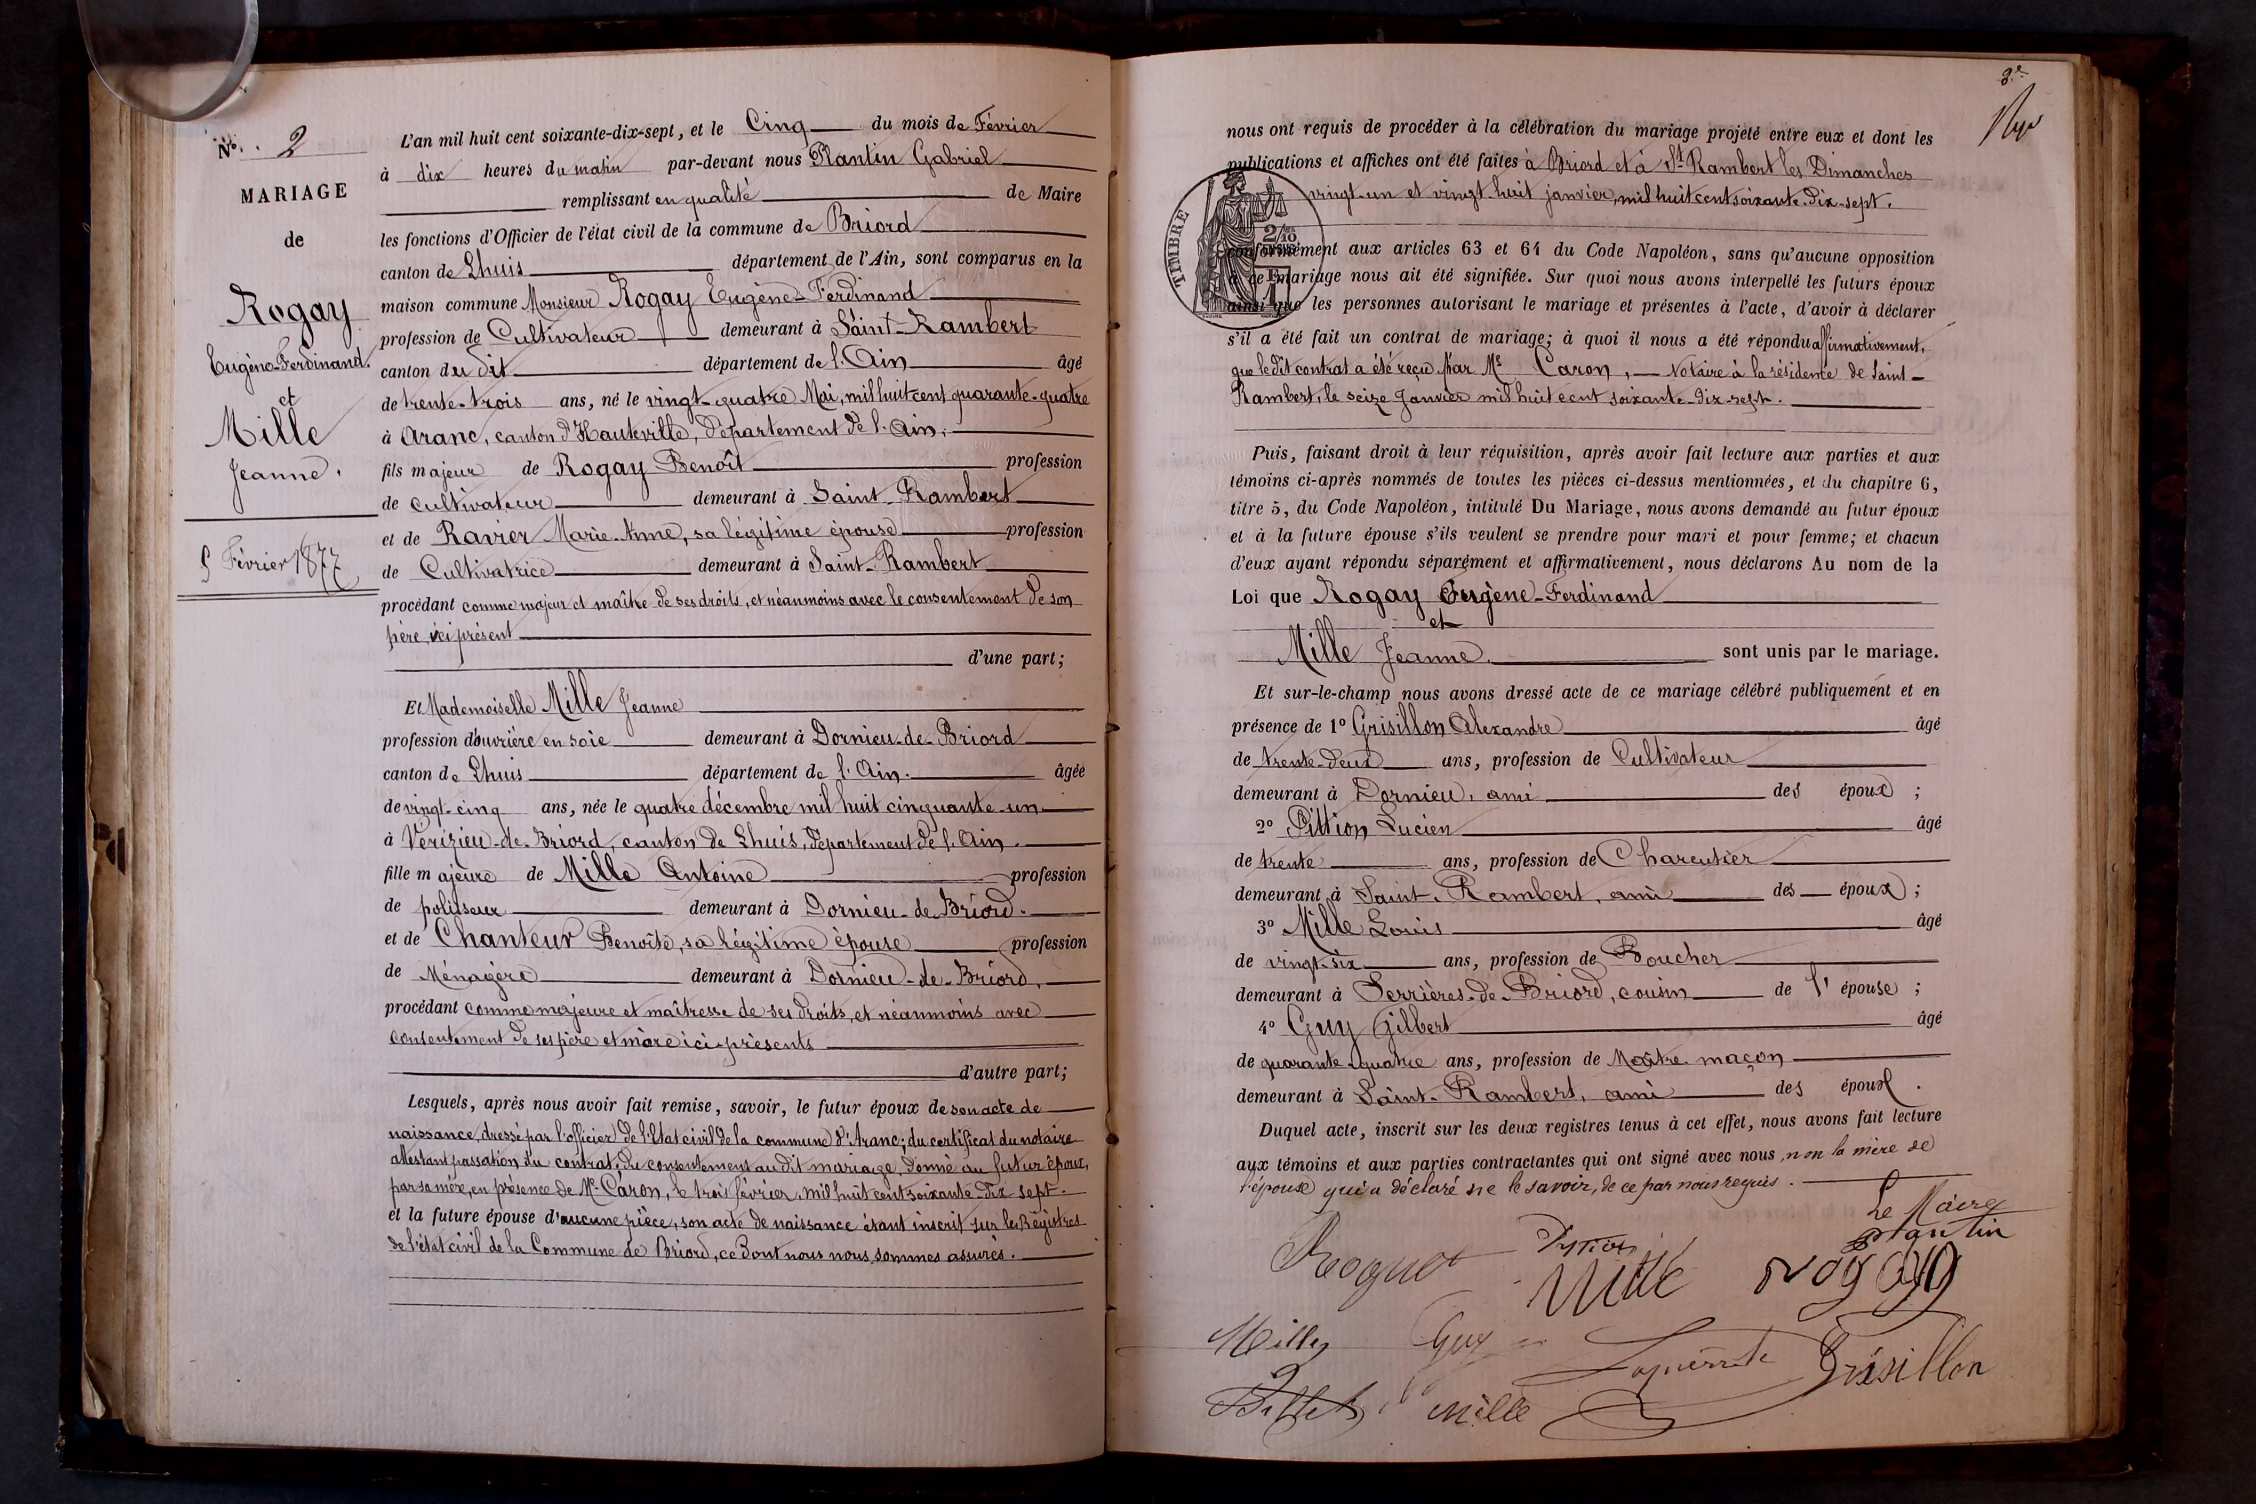 N° 2
MARIAGE
de
Rogay
Eugène-Ferdinand.
et
Mille
Jeanne.
5 Février 1877
L'an mil huit cent soixante-dix-sept, et le Cinq du mois de Février
à dix heures du matin par-devant nous Plantin Gabriel
remplissant en qualité de Maire
les fonctions d'Officier de l'état civil de la commune de Briord
canton de Lhuis département de l'Ain, sont comparus en la
maison commune Monsieur Rogay Eugène-Ferdinand
profession de Cultivateur demeurant à Saint-Rambert
canton du dit département de l'Ain âgé
de trente-trois ans, né le vingt-quatre Mai, mil huit cent quarante-quatre
à Aranc, canton d'Hauteville, département de l'Ain,
fils majeur de Rogay Benoît profession
de cultivateur demeurant à Saint-Rambert
et de Ravier Marie-Anne, sa légitime épouse profession
de Cultivatrice demeurant à Saint-Rambert
procédant comme majeur et maître de ses droits, et néanmoins avec le consentement de son
père, ici présent
d'une part;
Et Mademoiselle Mille Jeanne
profession d'ouvrière en soie demeurant à Dornieu-de-Briord
canton de Lhuis département de l'Ain. âgée
de vingt-cinq ans, née le quatre décembre mil huit cinquante-un
à Vérizieu-de-Briord, canton de Lhuis, département de l'Ain.
fille majeure de Mille Antoine profession
de polisseur demeurant à Dornieu-de-Briord.
et de Chanteur Benoîte, sa légitime épouse profession
de Ménagère demeurant à Dornieu-de-Briord,
procédant comme majeure et maîtresse de ses droits, et néanmoins avec
consentement de ses père et mère ici présents
d'autre part;
Lesquels, après nous avoir fait remise, savoir, le futur époux de son acte de
naissance, dressé par l'officier de l'Etat civil de la commune d'Aranc; du certificat du notaire
attestant passation du contrat, du consentement au dit mariage, donné au futur époux,
par sa mère, en présence de Me Caron, le trois février, mil huit cent soixante-dix sept.
et la future épouse d'aucune pièce, son acte de naissance étant inscrit sur les Régistres
de l'état civil de la Commune de Briord, ce dont nous nous sommes assurés.
nous ont requis de procéder à la célébration du mariage projeté entre eux et dont les
publications et affiches ont été faites à Briord et à St Rambert les Dimanches
vingt-un et vingt-huit janvier, mil huit cent soixante-dix-sept.
TIMBRE
2/10
conformément aux articles 63 et 64 du Code Napoléon, sans qu'aucune opposition
à ce mariage nous ait été signifiée. Sur quoi nous avons interpellé les futurs époux
ainsi que les personnes autorisant le mariage et présentes à l'acte, d'avoir à déclarer
s'il a été fait un contrat de mariage; à quoi il nous a été répondu affirmativement,
que le dit contrat a été reçu par Me Caron, Notaire à la résidence de Saint-
Rambert, le seize Janvier mil huit cent soixante-dix-sept.
Puis, faisant droit à leur réquisition, après avoir fait lecture aux parties et aux
témoins ci-après nommés de toutes les pièces ci-dessus mentionnées, et du chapitre 6,
titre 5, du Code Napoléon, intitulé Du Mariage, nous avons demandé au futur époux
et à la future épouse s'ils veulent se prendre pour mari et pour femme; et chacun
d'eux ayant répondu séparément et affirmativement, nous déclarons Au nom de la
Loi que Rogay Eugène-Ferdinand
et
Mille Jeanne. sont unis par le mariage.
Et sur-le-champ nous avons dressé acte de ce mariage célébré publiquement et en
présence de 1° Grisillon Alexandre âgé
de trente-deux ans, profession de Cultivateur
demeurant à Dornieu, ami des époux ;
2° Pittion Lucien âgé
de trente ans, profession de Charcutier
demeurant à Saint-Rambert, ami des époux ;
3° Mille Louis âgé
de vingt-six ans, profession de Boucher
demeurant à Serrières-de-Briord, cousin de l'épouse ;
4° Guy Gilbert âgé
de quarante-quatre ans, profession de Maître maçon
demeurant à Saint-Rambert, ami des époux.
Duquel acte, inscrit sur les deux registres tenus à cet effet, nous avons fait lecture
aux témoins et aux parties contractantes qui ont signé avec nous, non la mère de
l'épouse qui a déclaré ne le savoir, de ce par nous requis.
Le Maire
Plantin
Mille Rogay
Mille Guy Grisillon
Billet Mille